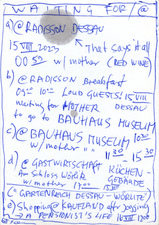 WAITING FOR /@
a) @ RADISSON DESSAU
15 VIII 2023 That says it all
00 52 w/mother (RED WINE)
b) @ RADISSON Breakfast
09 10 LOUD GUESTS! 15 VIII
waiting for MOTHER DESSAU
to go to BAUHAUS MUSEUM
c) @ BAUHAUS MUSEUM 10 30
w/mother 11 30 15 30
d) @ GASTWIRTSCHAFT
AM Schloss KÜCHEN-
w/mother 17 GEBÄUDE
(GARTENREICH DESSAU-WÖRLITZ)
e) Shopping @ KAUFLAND after jogging
→ A PENSIONIST'S LIFE 16 VIII